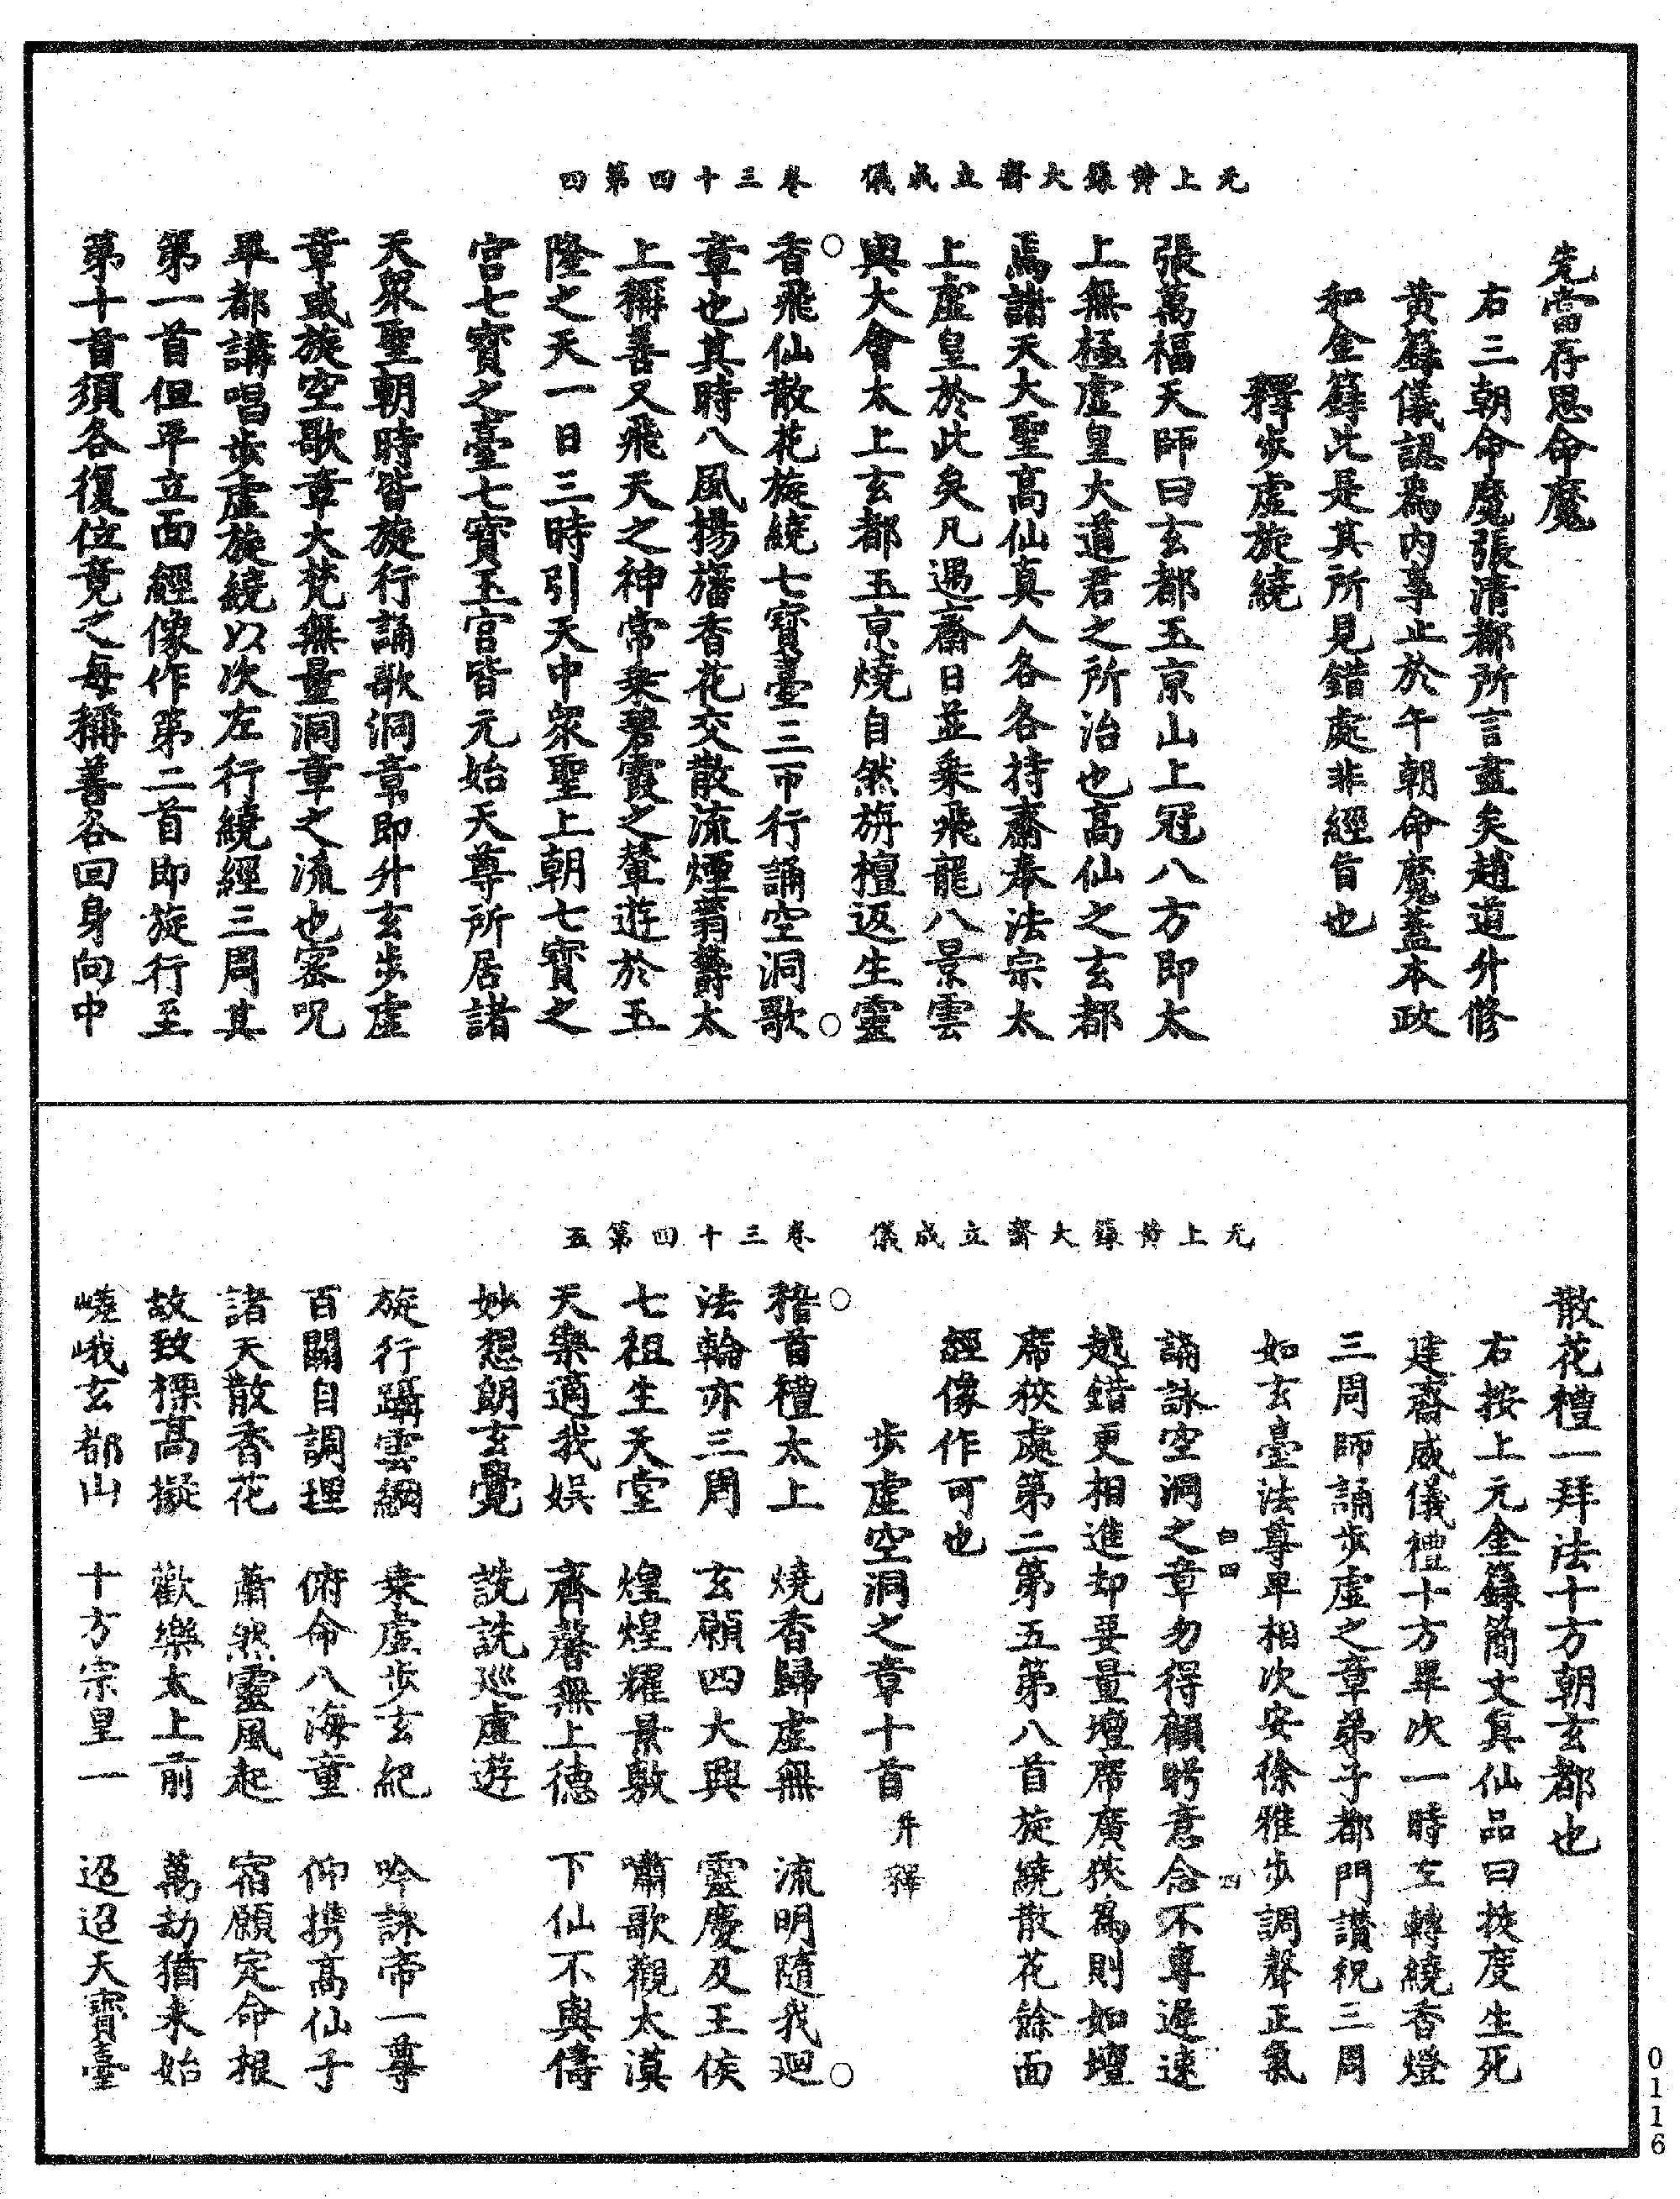 元上黃籙大齋立成儀　卷三十四第四
先當存思命魔
右三朝命魔張清都所言盡矣趙道升修
黃籙儀認爲內事止於午朝命魔蓋本政
和金籙此是其所見錯處非經旨也
釋步虛旋繞
張萬福天師曰玄都玉京山上冠八方即太
上無極虛皇大道君之所治也高仙之玄都
焉諸天大聖高仙真人各各持齋奉法宗太
上虛皇於此矣凡遇齋日並乘飛龍八景雲
輿大會太上玄都玉京燒自然旃檀返生靈
香飛仙散花旋繞七寶臺三帀行誦空洞歌
章也其時八風揚旛香花交散流煙蓊鬱太
上稱善又飛天之神常乘碧霞之輦遊於玉
隆之天一日三時引天中衆聖上朝七寶之
宮七寶之臺七寶玉宮皆元始天尊所居諸
天衆聖朝時皆旋行誦歌洞章即升玄步虛
章或旋空歌章大梵無量洞章之流也密呪
畢都講唱步虛旋繞以次左行繞經三周其
第一首但平立面經像作第二首即旋行至
第十首須各復位竟之每稱善各回身向中
元上黃籙大齋立成儀　卷三十四第五
散花禮一拜法十方朝玄都也
右按上元金籙簡文真仙品曰拔度生死
建齋威儀禮十方畢次一時左轉繞香燈
三周師誦步虛之章弟子都門讚祝三周
如玄臺法尊卑相次安徐雅步調聲正氣
誦詠空洞之章勿得顧眄意念不專遲速
越錯更相進却要量壇席廣狹爲則如壇
席狹處第二第五第八首旋繞散花餘面
經像作可也
步虛空洞之章十首 并釋
稽首禮太上　燒香歸虛無　流明隨我迴
法輪亦三周　玄願四大興　靈慶及王侯
七祖生天堂　煌煌耀景敷　嘯歌觀太漠
天樂適我娛　齊馨無上德　下仙不與儔
妙想朗玄覺　詵詵巡虛遊
旋行躡雲綱　乘虛步玄紀　吟詠帝一尊
百關自調理　俯命八海童　仰擕高仙子
諸天散香花　蕭然靈風起　宿願定命根
故致摽高擬　歡樂太上前　萬劫猶未始
嵯峨玄都山　十方宗皇一　迢迢天寶臺
0116